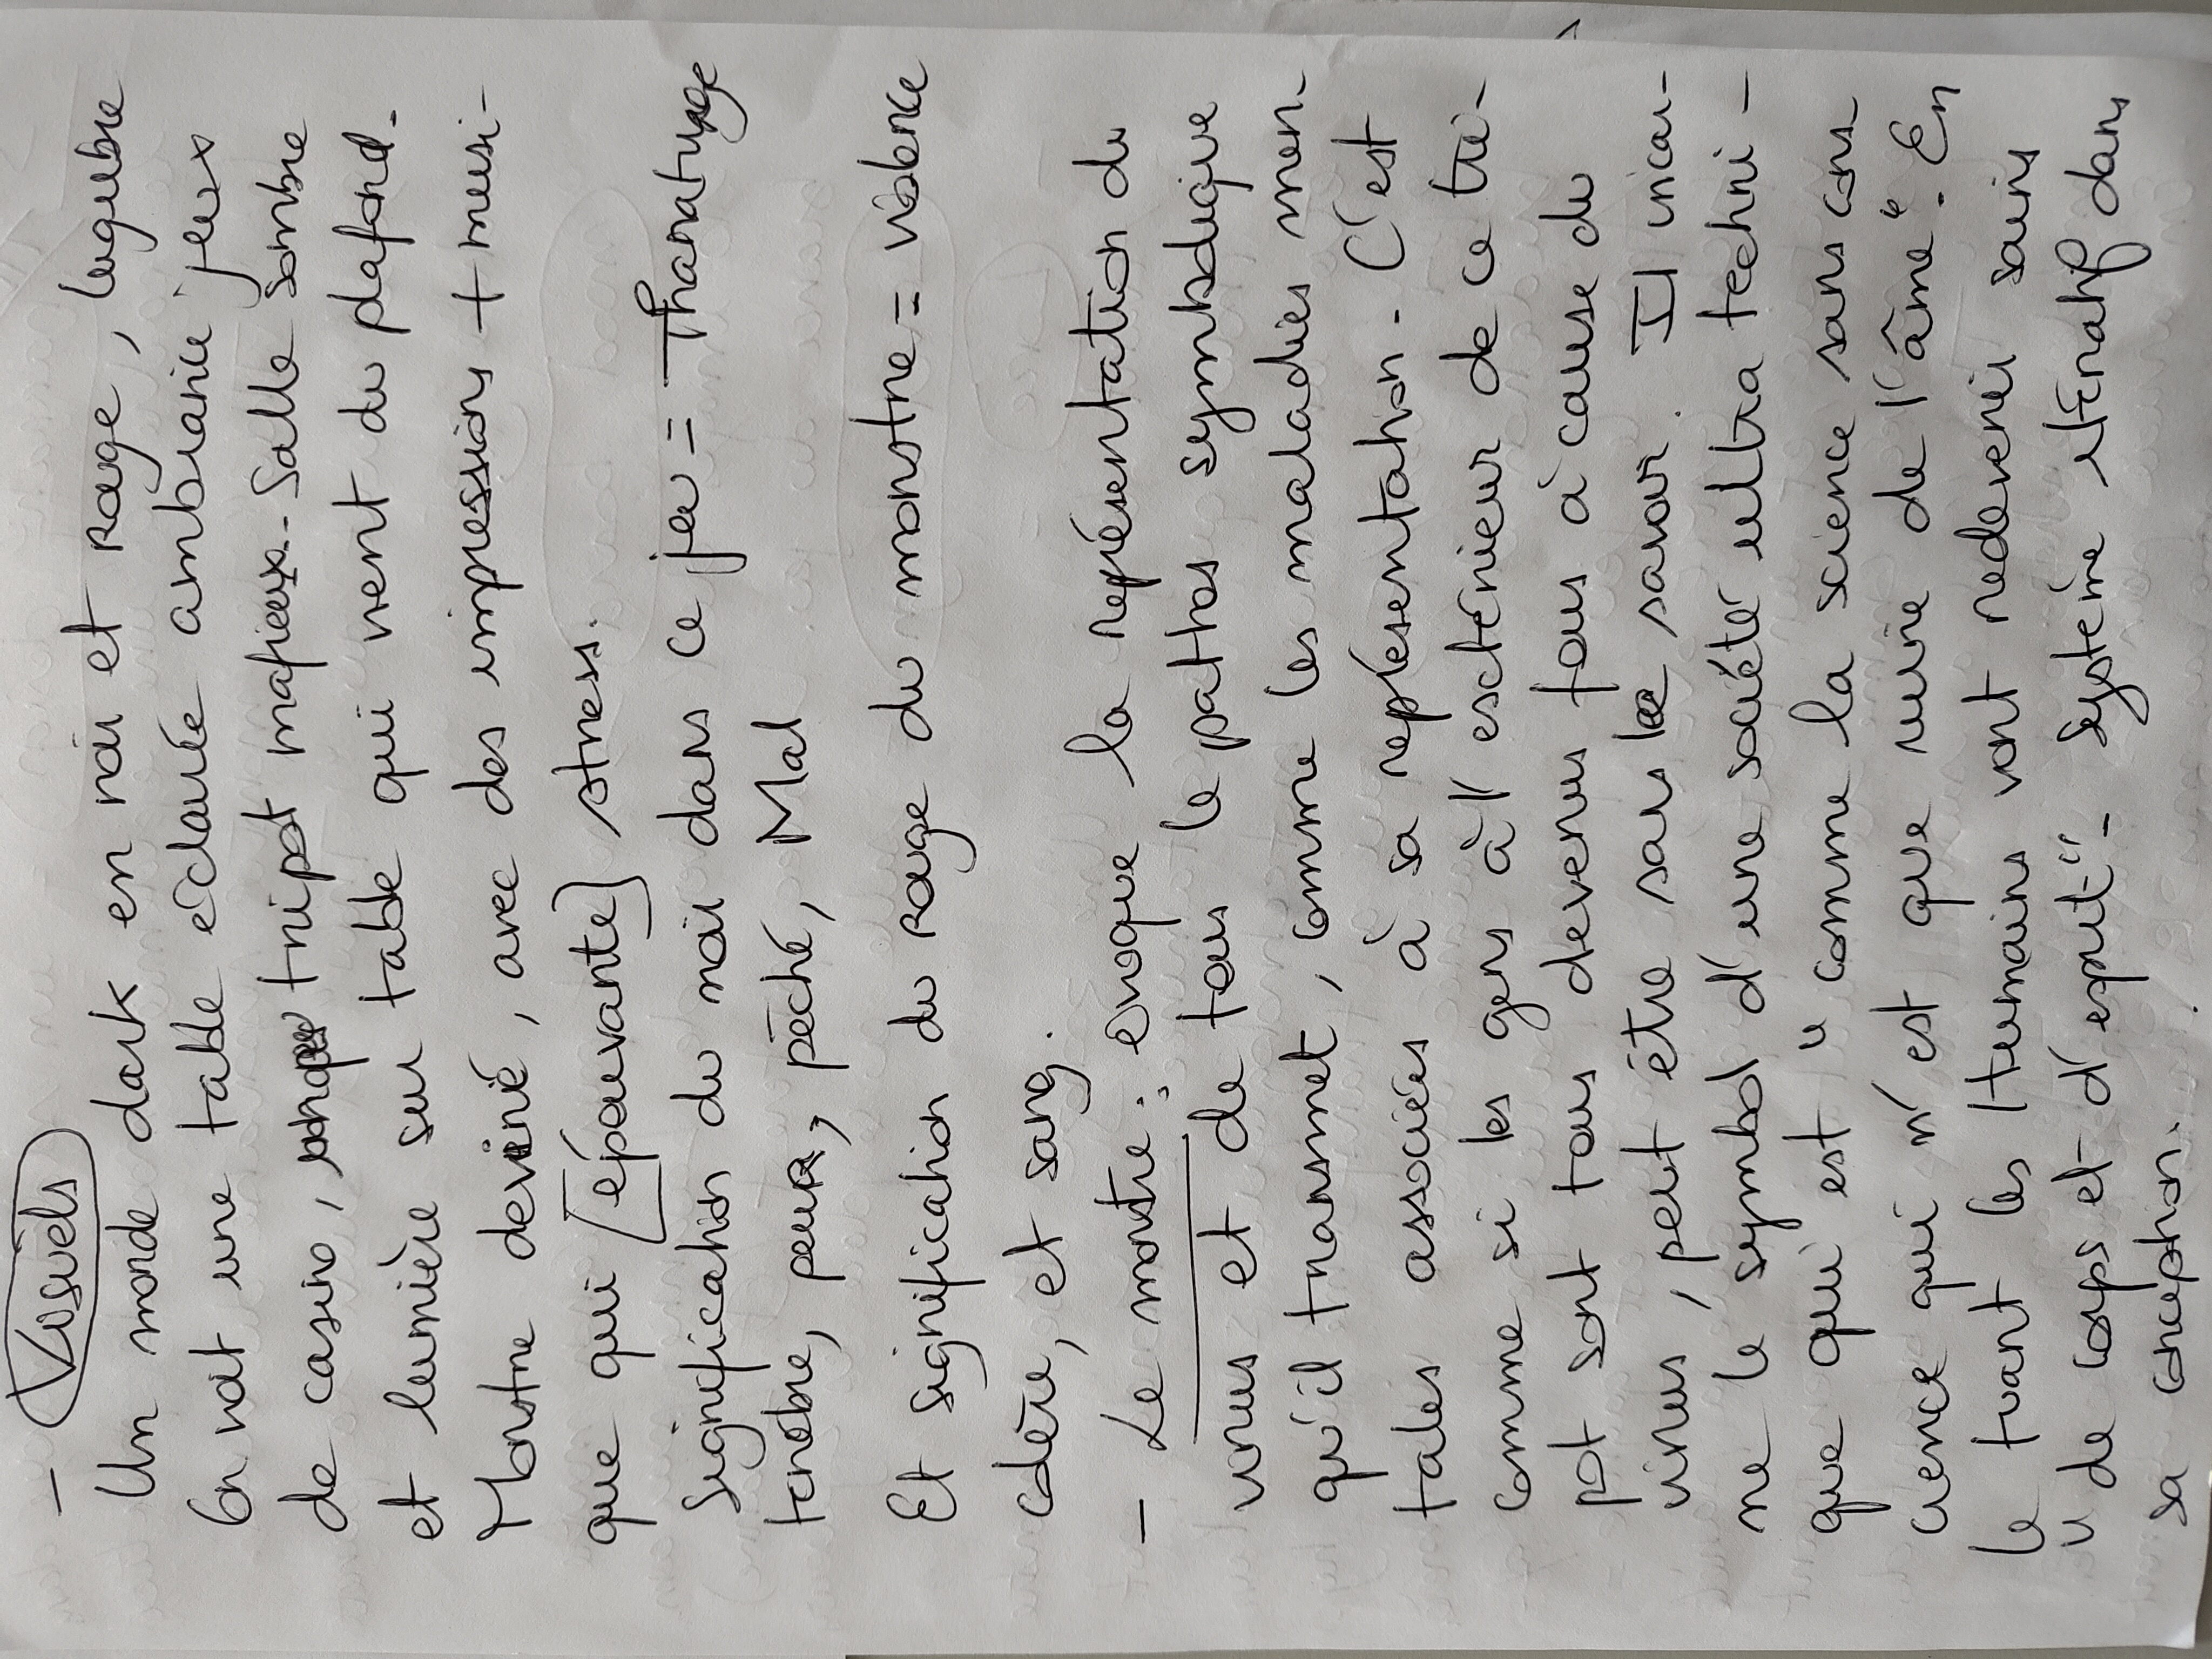 - Visuels
Un monde dark en noir et Rouge, lugubre
On voit une table éclairée ambiance jeux
de casino, tripot mafieux.. Salle sombre
et lumière sur table qui vient du plafond.
Monstre deviné, avec des impressions + musi-
que qui [épouvante] stress.
Signification du noir dans ce jeu = Thanaturge
tenèbre, peuR, pêché, Mal
Et signification du Rouge du monstre = violence
colère, et sang.
- Le monstre : evoque la représentation du
virus et de tous le pathos symbolique
qu'il transmet, comme les maladies men-
tales associées à sa représentation. C'est
comme si les gens à l'exctérieur de ce tri-
pot sont tous devenus fous à cause du
virus, peut être sans le savoir. Il incar-
ne le symbol d'une société ultra techni-
que qui est "comme la science sans cons-
cience qui n'est que ruine de l'âme". En
le tuant les Humains vont redevenir sains
"de corps et d'esprit". Système itératif dans
sa conception.